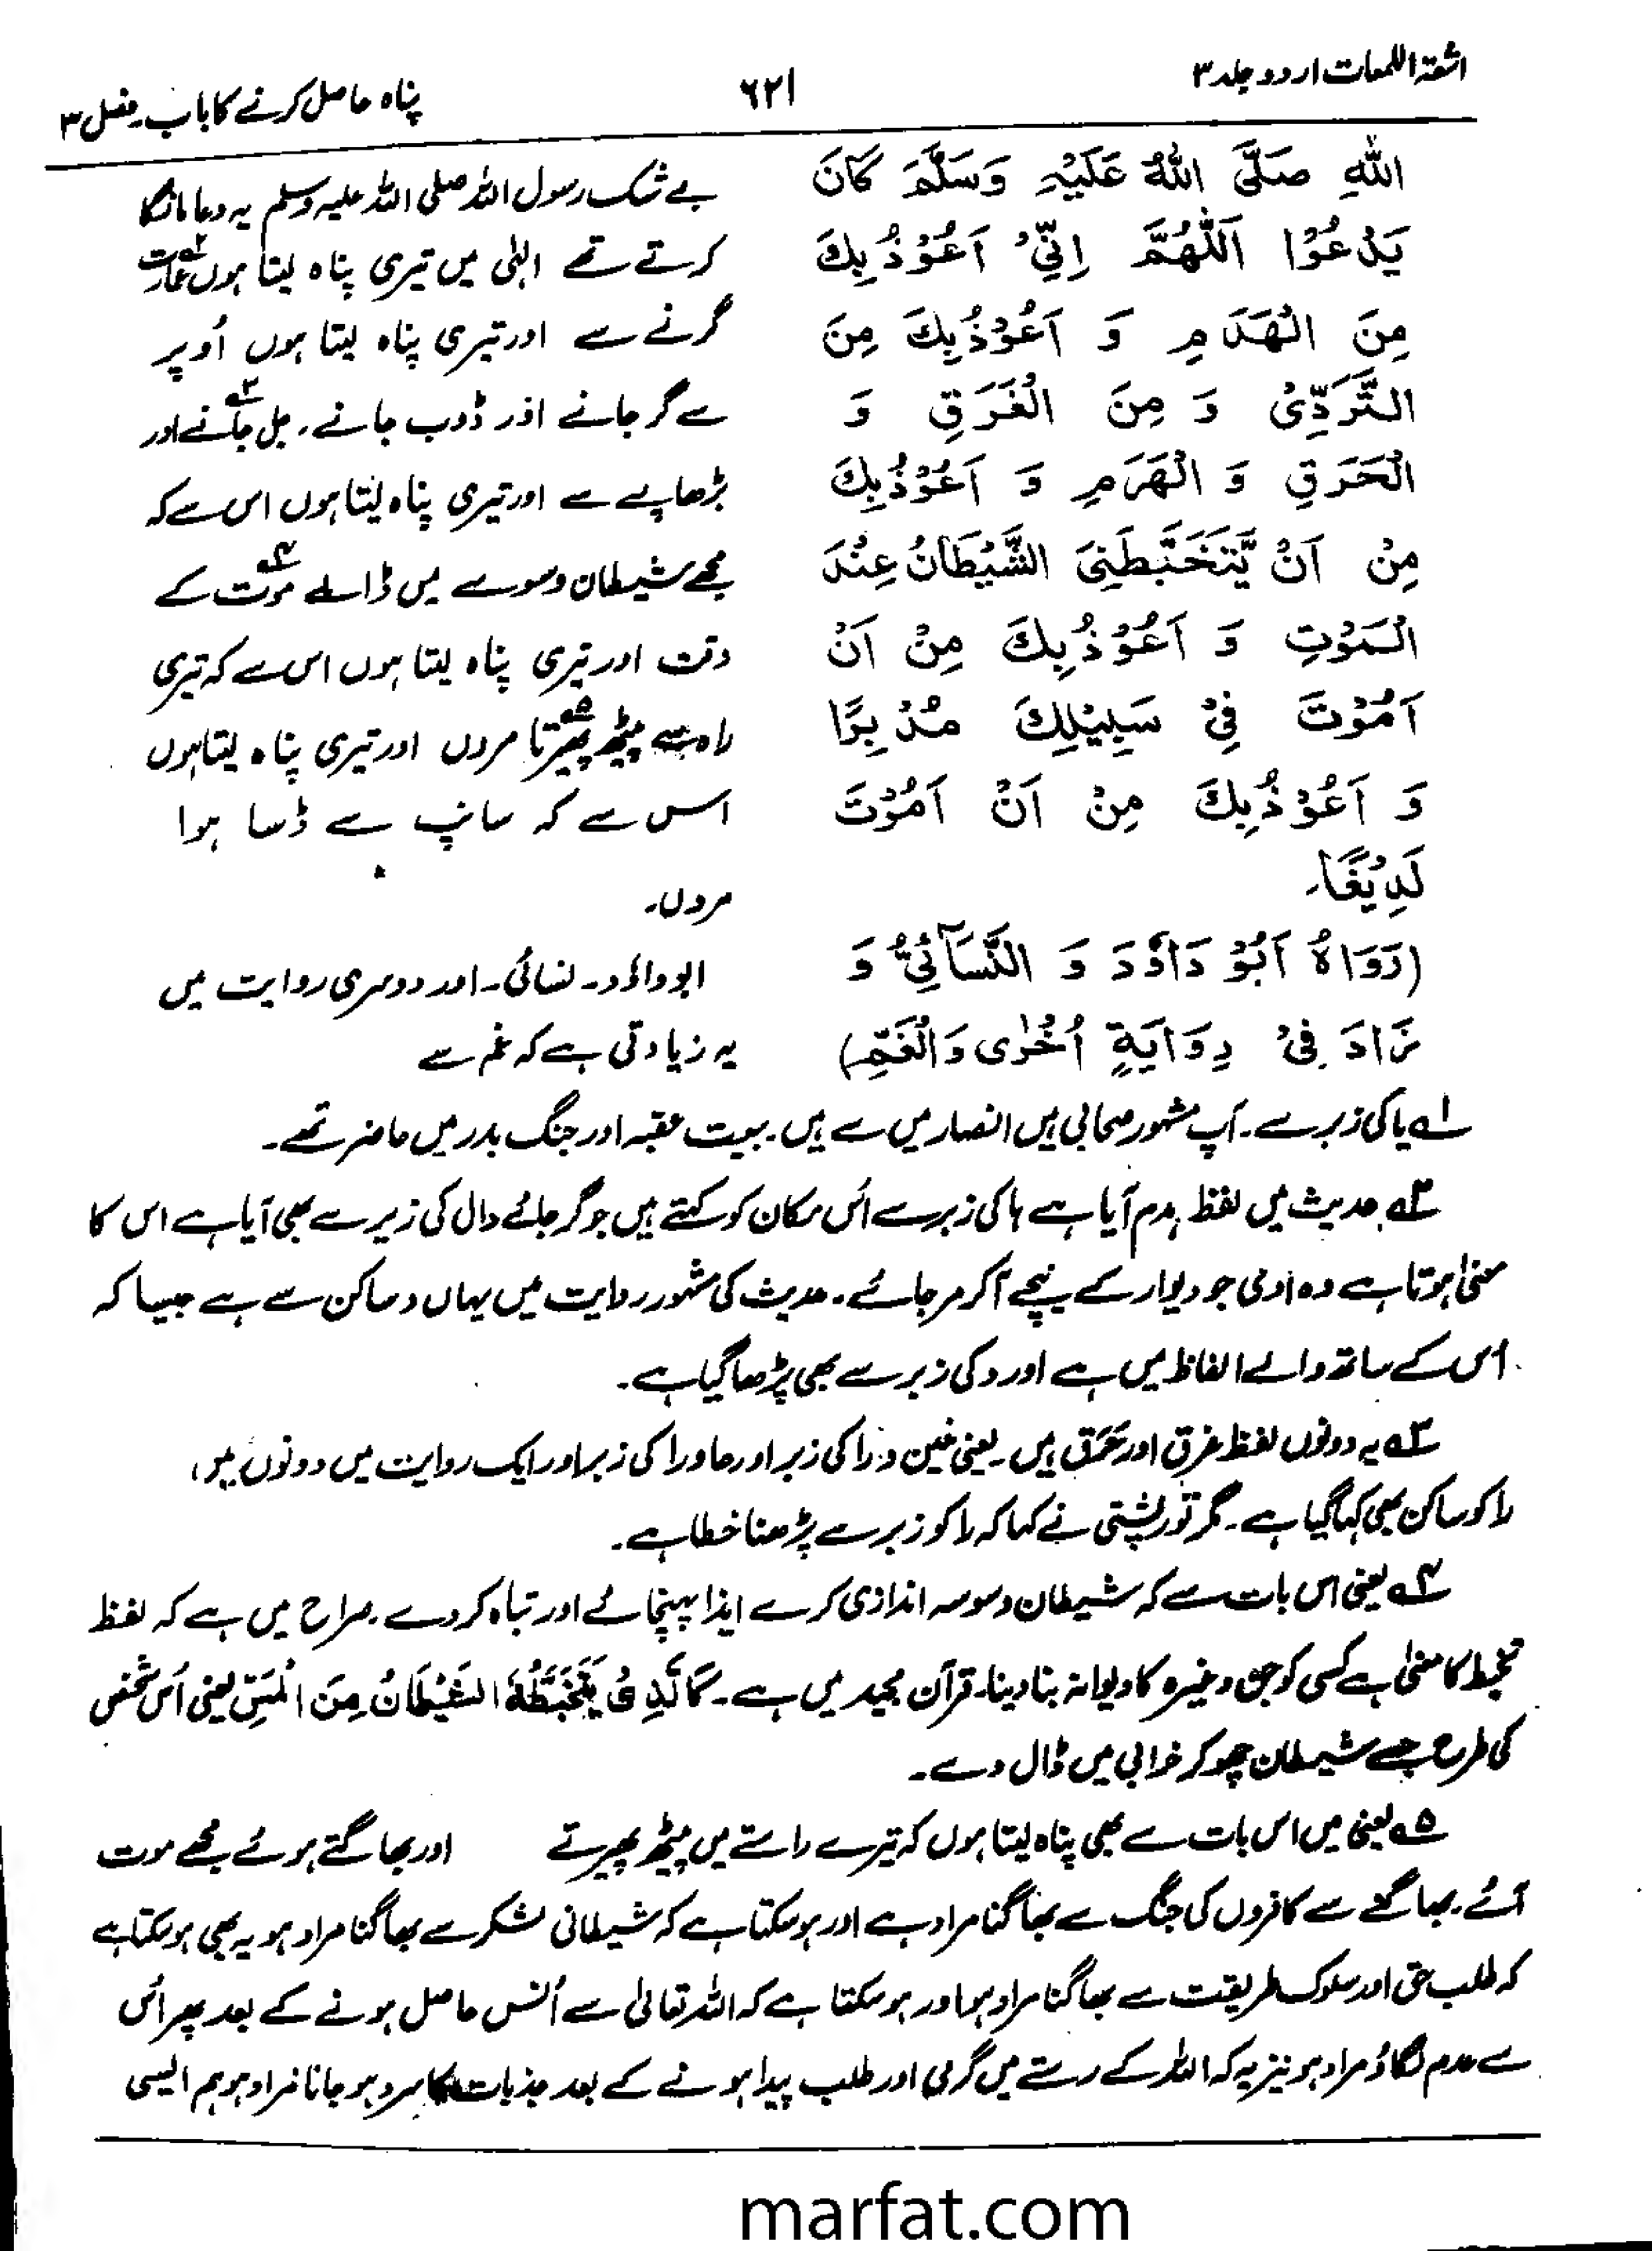 اشعۃ اللمعات اردو جلد ۳
۶۲۱
پناہ حاصل کرنے کا باب۔ فصل ۳
اللّٰهِ صَلَّى اللّٰهُ عَلَيْهِ وَسَلَّمَ كَانَ
يَدْعُوْا اَللّٰهُمَّ اِنِّيْ اَعُوْذُ بِكَ
مِنَ الْهَدَمِ وَ اَعُوْذُ بِكَ مِنَ
التَّرَدِّىْ وَ مِنَ الْغَرَقِ وَ
الْحَرَقِ وَ الْهَرَمِ وَ اَعُوْذُ بِكَ
مِنْ اَنْ يَّتَخَبَّطَنِىَ الشَّيْطَانُ عِنْدَ
الْمَوْتِ وَ اَعُوْذُ بِكَ مِنْ اَنْ
اَمُوْتَ فِىْ سَبِيْلِكَ مُدْبِرًا
وَ اَعُوْذُ بِكَ مِنْ اَنْ اَمُوْتَ
لَدِيْغًا۔
(رَوَاهُ اَبُوْ دَاوٗدَ وَ النَّسَآئِىُّ وَ
زَادَ فِىْ رِوَايَةٍ اُخْرٰى وَالْغَمِّ)
بے شک رسول اللہ صلی اللہ علیہ وسلم یہ دعا مانگا
کرتے تھے الٰہی میں تیری پناہ لیتا ہوں عمارت۲؎
گرنے سے اور تیری پناہ لیتا ہوں اُوپر
سے گر جانے اور ڈوب جانے، جل جانے۳؎ اور
بڑھاپے سے اور تیری پناہ لیتا ہوں اس سے کہ
مجھے شیطان وسوسے میں ڈالے موت۴؎ کے
وقت اور تیری پناہ لیتا ہوں اس سے کہ تیری
راہ سے پیٹھ پھیرتا۵؎ مروں اور تیری پناہ لیتا ہوں
اس سے کہ سانپ سے ڈسا ہوا
مروں۔
ابو داؤد۔ نسائی۔ اور دوسری روایت میں
یہ زیادتی ہے کہ غم سے
۱؎ یا کی زبر سے۔ آپ مشہور صحابی ہیں انصار میں سے ہیں۔ بیعت عقبہ اور جنگ بدر میں حاضر تھے۔
۲؎ حدیث میں لفظ ہدم آیا ہے ہا کی زبر سے اُس مکان کو کہتے ہیں جو گر جائے دال کی زیر سے بھی آیا ہے اس کا
معنٰی ہوتا ہے وہ آدمی جو دیوار کے نیچے آ کر مر جائے۔ حدیث کی مشہور روایت میں یہاں د ساکن سے ہے جیسا کہ
اس کے ساتھ والے الفاظ میں ہے اور د کی زبر سے بھی پڑھا گیا ہے۔
۳؎ یہ دونوں لفظ غرق اور حَرَق ہیں۔ یعنی غین و را کی زبر اور حا و را کی زبر اور ایک روایت میں دونوں میں
را کو ساکن بھی کہا گیا ہے۔ مگر تورپشتی نے کہا کہ را کو زبر سے پڑھنا خطا ہے۔
۴؎ یعنی اس بات سے کہ شیطان وسوسہ اندازی کرے ایذا پہنچائے اور تباہ کر دے۔ صراح میں ہے کہ لفظ
تخبط کا معنٰی ہے کسی کو جن وغیرہ کا دیوانہ بنا دینا۔ قرآن مجید میں ہے۔ كَالَّذِىْ يَتَخَبَّطُهُ الشَّيْطَانُ مِنَ الْمَسِّ یعنی اُس شخص
کی طرح جسے شیطان چھو کر خرابی میں ڈال دے۔
۵؎ یعنی میں اس بات سے بھی پناہ لیتا ہوں کہ تیرے راستے میں پیٹھ پھیرتے اور بھاگتے ہوئے مجھے موت
آئے۔ بھاگنے سے کافروں کی جنگ سے بھاگنا مراد ہے اور ہو سکتا ہے کہ شیطانی لشکر سے بھاگنا مراد ہو یہ بھی ہو سکتا ہے
کہ طلب حق اور سلوک طریقت سے بھاگنا مراد ہو اور ہو سکتا ہے کہ اللہ تعالیٰ سے اُنس حاصل ہونے کے بعد پھر اُس
سے عدم لگاؤ مراد ہو نیز یہ کہ اللہ کے رستے میں گرمی اور طلب پیدا ہونے کے بعد جذبات کا سرد ہو جانا مراد ہو ہم ایسی
marfat.com